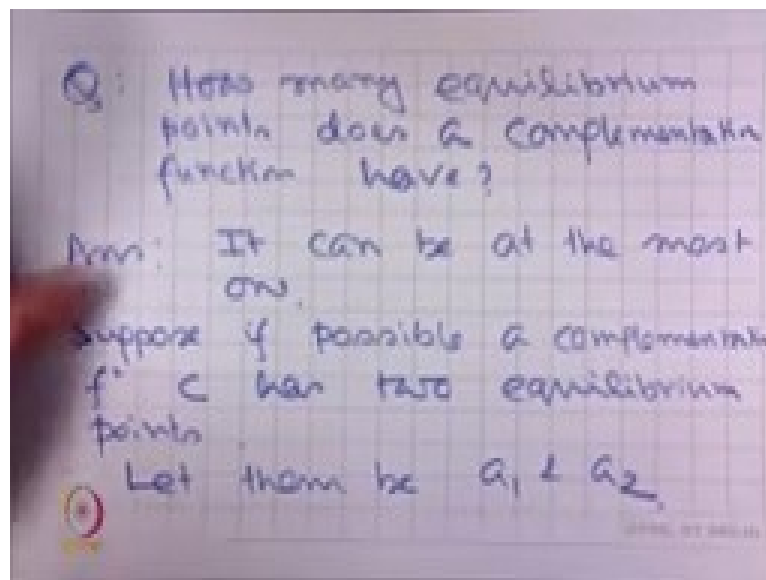 Q: How many equilibrium
points does a complementation
function have?
Ans: It can be at the most
one.
Suppose if possible a complementation
fⁿ C has two equilibrium
points.
Let them be a₁ & a₂.